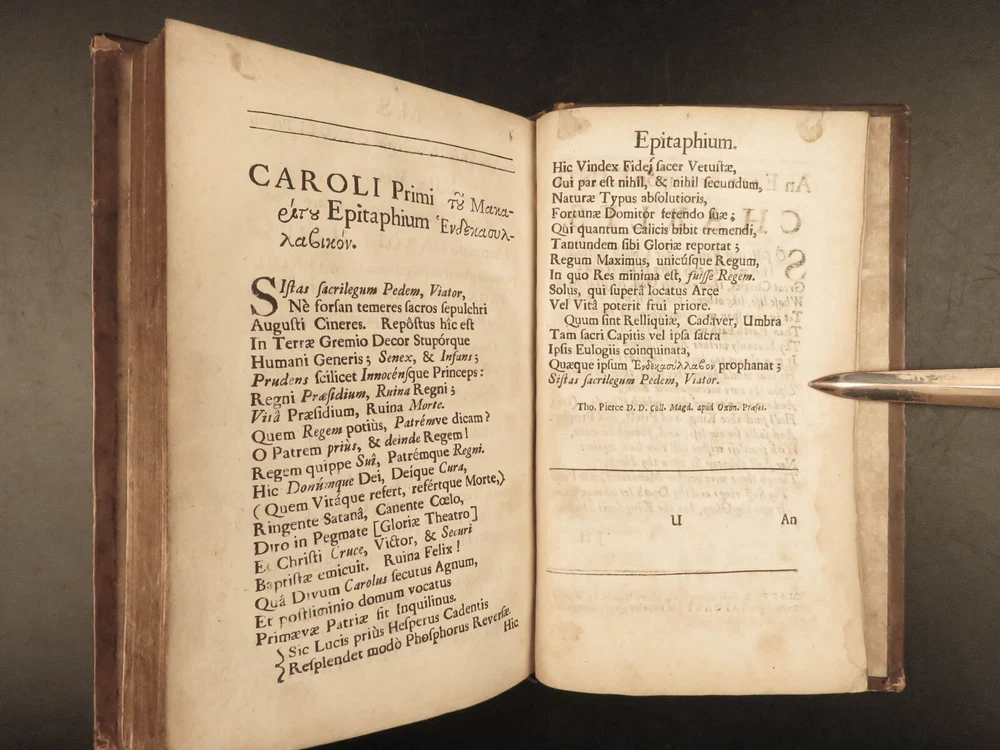 CAROLI Primi τȣ͂ Μακα-
ρίτȣ Epitaphium Ἑνδεκασυλ-
λαβικόν.
SIſtas ſacrilegum Pedem, Viator,
Nè forſan temeres ſacros ſepulchri
Auguſti Cineres. Repôſtus hîc eſt
In Terræ Gremio Decor Stupórque
Humani Generis; Senex, & Infans;
Prudens ſcilicet Innocénſque Princeps:
Regni Præſidium, Ruina Regni;
Vitâ Præſidium, Ruina Morte.
Quem Regem potiùs, Patrémve dicam?
O Patrem priùs, & deinde Regem!
Regem quippe Suî, Patrémque Regni.
Hic Donúmque Dei, Deíque Cura,
(Quem Vitáque refert, refértque Morte,)
Ringente Satanâ, Canente Cœlo,
Diro in Pegmate [Gloriæ Theatro]
Et Chriſti Cruce, Victor, & Securi
Baptiſtæ emicuit. Ruina Felix!
Quâ Divum Carolus ſecutus Agnum,
Et poſtliminio domum vocatus
Primævæ Patriæ fit Inquilinus.
Sic Lucis priùs Heſperus Cadentis
Reſplendet modò Phoſphorus Reverſæ.
Hic
Epitaphium.
Hic Vindex Fidei ſacer Vetuſtæ,
Cui par eſt nihil, & nihil ſecundum,
Naturæ Typus abſolutioris,
Fortunæ Domitor ferendo ſuæ;
Qui quantum Calicis bibit tremendi,
Tantundem ſibi Gloriæ reportat;
Regum Maximus, unicúſque Regum,
In quo Res minima eſt, fuiſſe Regem.
Solus, qui ſuperâ locatus Arce
Vel Vitâ poterit frui priore.
Quum ſint Relliquiæ, Cadáver, Umbra
Tam ſacri Capitis vel ipſa ſacra
Ipſis Eulogiis coinquinata,
Quæque ipſum Ἑνδεκασύλλαβον prophanat;
Siſtas ſacrilegum Pedem, Viator.
Tho. Pierce D. D. Coll. Magd. apud Oxon. Præſes.
U An